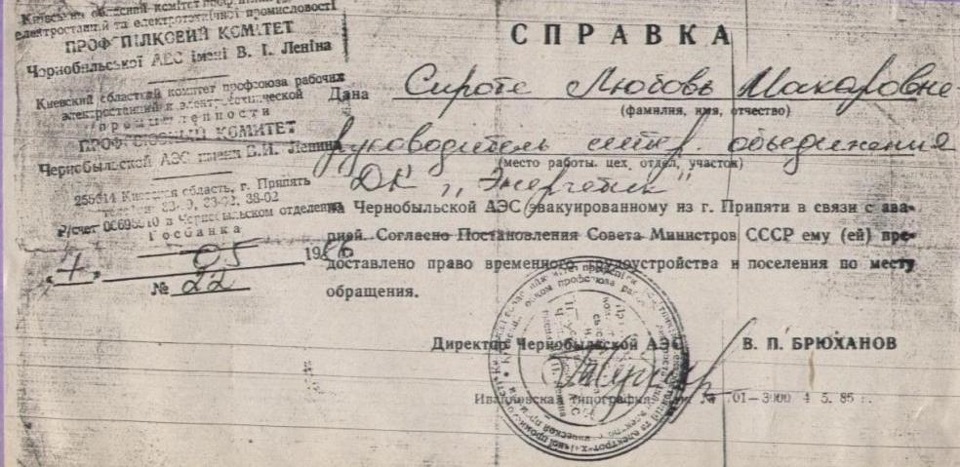 електростанцій та електротехнічної промисловості
ПРОФСПІЛКОВИЙ КОМІТЕТ
Чорнобильської АЕС імені В. І. Леніна
Киевский областной комитет профсоюза рабочих
электростанций и электротехнической
промышленности
ПРОФСОЮЗНЫЙ КОМИТЕТ
Чернобыльской АЭС имени В.И. Ленина
255614 Киевская область, г. Припять
23-02, 38-02
Р/счет в Чернобыльском отделении
Госбанка
05 1986
№ 22
СПРАВКА
Дана Сироте Любовь Макаровне
(фамилия, имя, отчество)
руководитель литер. объединения
(место работы, цех, отдел, участок)
ДК „Энергетик"
на Чернобыльской АЭС эвакуированному из г. Припяти в связи с ава-
рией. Согласно Постановления Совета Министров СССР ему (ей) пре-
доставлено право временного трудоустройства и поселения по месту
обращения.
Директор Чернобыльской АЭС В. П. БРЮХАНОВ
Ивановская типография 01—3000 4 5. 85 г.